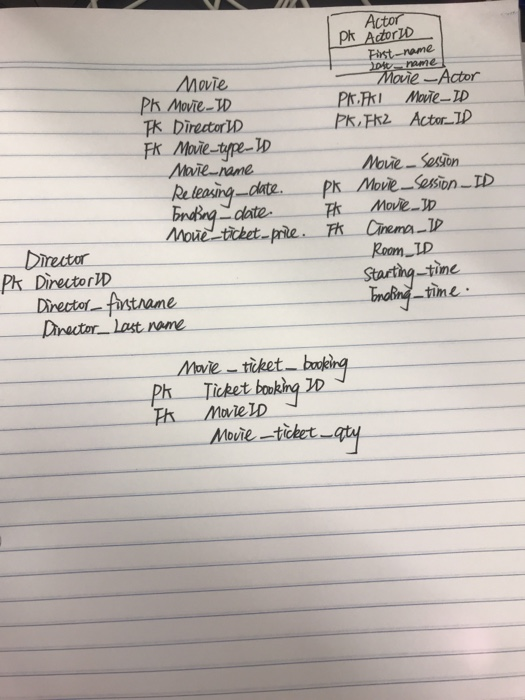 Actor
PK ActorID
First_name
Last_name
Movie_Actor
PK,FK1 Movie_ID
PK,FK2 Actor_ID
Movie
PK Movie_ID
FK DirectorID
FK Movie_type_ID
Movie_name
Releasing_date.
Ending_date.
Movie_ticket_price.
Movie_Session
PK Movie_Session_ID
FK Movie_ID
FK Cinema_ID
Room_ID
Starting_time
Ending_time.
Director
PK DirectorID
Director_firstname
Director_Last name
Movie_ticket_booking
PK Ticket booking ID
FK MovieID
Movie_ticket_qty